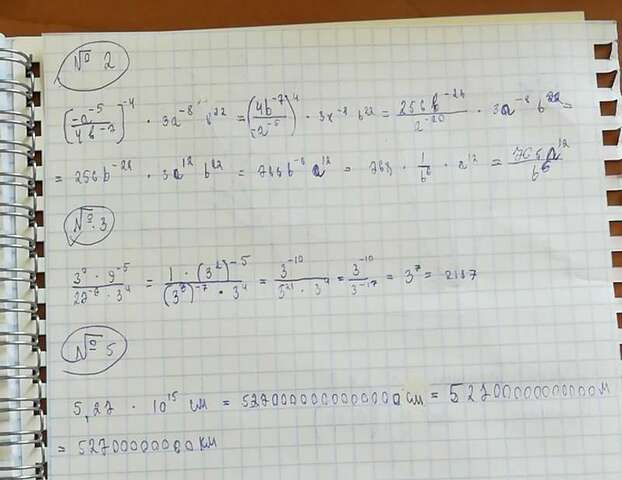 № 2
(-a^-5 / 4b^-7)^-4 · 3a^-8 · b^22 = (4b^-7 / -a^-5)^4 · 3a^-8 b^22 = 256b^-28 / a^-20 · 3a^-8 b^22 =
= 256b^-28 · 3a^12 b^22 = 768b^-6 a^12 = 768 · 1/b^6 · a^12 = 768a^12 / b^6
№ 3
3^0 · 9^-5 / 27^-7 · 3^4 = 1 · (3^2)^-5 / (3^3)^-7 · 3^4 = 3^-10 / 3^-21 · 3^4 = 3^-10 / 3^-17 = 3^7 = 2187
№ 5
5,27 · 10^15 см = 5270000000000000 см = 52700000000000 м
= 52700000000 км